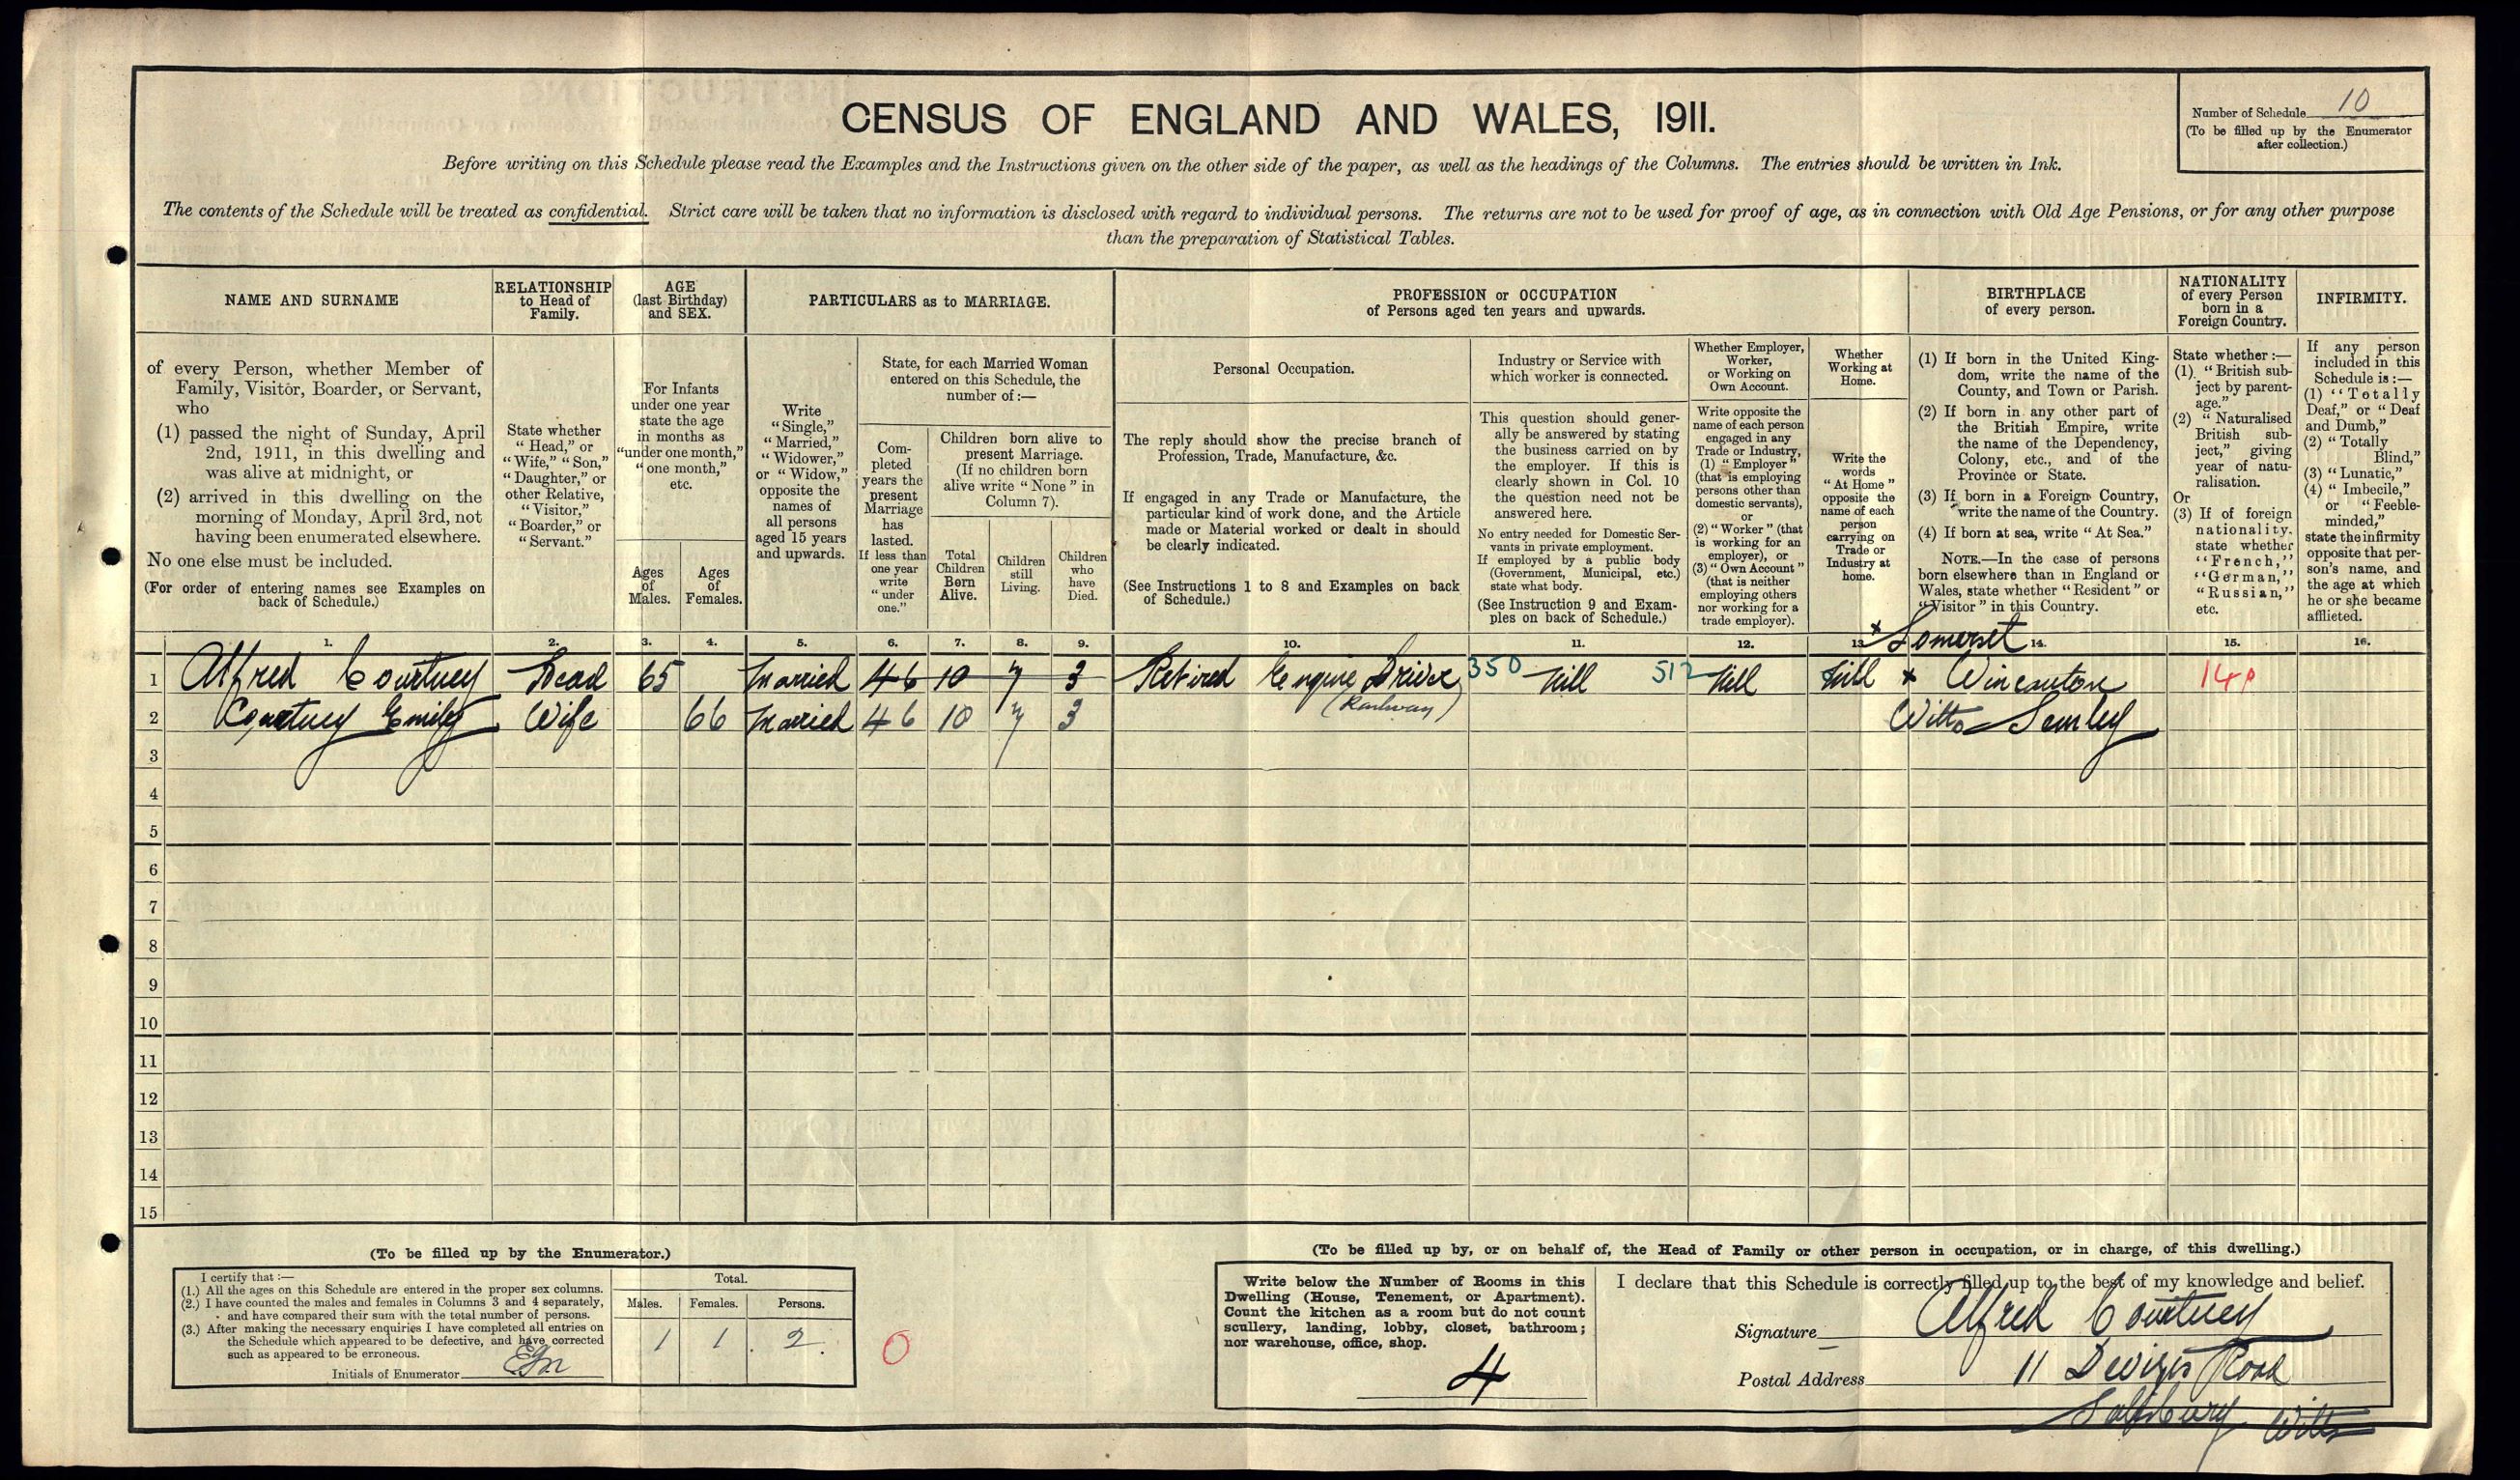 CENSUS OF ENGLAND AND WALES, 1911.
Number of Schedule 10
(To be filled up by the Enumerator
after collection.)
Before writing on this Schedule please read the Examples and the Instructions given on the other side of the paper, as well as the headings of the Columns. The entries should be written in Ink.
The contents of the Schedule will be treated as confidential. Strict care will be taken that no information is disclosed with regard to individual persons. The returns are not to be used for proof of age, as in connection with Old Age Pensions, or for any other purpose
than the preparation of Statistical Tables.
NAME AND SURNAME
of every Person, whether Member of
Family, Visitor, Boarder, or Servant,
who
(1) passed the night of Sunday, April
2nd, 1911, in this dwelling and
was alive at midnight, or
(2) arrived in this dwelling on the
morning of Monday, April 3rd, not
having been enumerated elsewhere.
No one else must be included.
(For order of entering names see Examples on
back of Schedule.)
RELATIONSHIP
to Head of
Family.
State whether
"Head," or
"Wife," "Son,"
"Daughter," or
other Relative,
"Visitor,"
"Boarder," or
"Servant."
AGE
(last Birthday)
and SEX.
For Infants
under one year
state the age
in months as
"under one month,"
"one month,"
etc.
Ages
of
Males.
Ages
of
Females.
PARTICULARS as to MARRIAGE.
Write
"Single,"
"Married,"
"Widower,"
or "Widow,"
opposite the
names of
all persons
aged 15 years
and upwards.
State, for each Married Woman
entered on this Schedule, the
number of:—
Com-
pleted
years the
present
Marriage
has
lasted.
If less than
one year
write
"under
one."
Children born alive to
present Marriage.
(If no children born
alive write "None" in
Column 7).
Total
Children
Born
Alive.
Children
still
Living.
Children
who
have
Died.
PROFESSION or OCCUPATION
of Persons aged ten years and upwards.
Personal Occupation.
The reply should show the precise branch of
Profession, Trade, Manufacture, &c.
If engaged in any Trade or Manufacture, the
particular kind of work done, and the Article
made or Material worked or dealt in should
be clearly indicated.
(See Instructions 1 to 8 and Examples on back
of Schedule.)
Industry or Service with
which worker is connected.
This question should gener-
ally be answered by stating
the business carried on by
the employer. If this is
clearly shown in Col. 10
the question need not be
answered here.
No entry needed for Domestic Ser-
vants in private employment.
If employed by a public body
(Government, Municipal, etc.)
state what body.
(See Instruction 9 and Exam-
ples on back of Schedule.)
Whether Employer,
Worker,
or Working on
Own Account.
Write opposite the
name of each person
engaged in any
Trade or Industry,
(1) "Employer"
(that is employing
persons other than
domestic servants),
or
(2) "Worker" (that
is working for an
employer), or
(3) "Own Account"
(that is neither
employing others
nor working for a
trade employer).
Whether
Working at
Home.
Write the
words
"At Home"
opposite the
name of each
person
carrying on
Trade or
Industry at
home.
BIRTHPLACE
of every person.
(1) If born in the United King-
dom, write the name of the
County, and Town or Parish.
(2) If born in any other part of
the British Empire, write
the name of the Dependency,
Colony, etc., and of the
Province or State.
(3) If born in a Foreign Country,
write the name of the Country.
(4) If born at sea, write "At Sea."
NOTE.—In the case of persons
born elsewhere than in England or
Wales, state whether "Resident" or
"Visitor" in this Country.
NATIONALITY
of every Person
born in a
Foreign Country.
State whether:—
(1) "British sub-
ject by parent-
age."
(2) "Naturalised
British sub-
ject," giving
year of natu-
ralisation.
Or
(3) If of foreign
nationality,
state whether
"French,"
"German,"
"Russian,"
etc.
INFIRMITY.
If any person
included in this
Schedule is:—
(1) "Totally
Deaf," or "Deaf
and Dumb,"
(2) "Totally
Blind,"
(3) "Lunatic,"
(4) "Imbecile,"
or "Feeble-
minded,"
state the infirmity
opposite that per-
son's name, and
the age at which
he or she became
afflicted.
1. 2. 3. 4. 5. 6. 7. 8. 9. 10. 11. 12. 13 x Somerset 14. 15. 16.
1 Alfred Courtney Head 65 Married 46 10 7 3 Retired Engine Driver 350 Nill 512 Nill Nill x Wincanton 140
(Railway)
2 Courtney Emily Wife 66 Married 46 10 7 3 Wilts Semley
3
4
5
6
7
8
9
10
11
12
13
14
15
(To be filled up by the Enumerator.)
I certify that:—
(1.) All the ages on this Schedule are entered in the proper sex columns.
(2.) I have counted the males and females in Columns 3 and 4 separately,
and have compared their sum with the total number of persons.
(3.) After making the necessary enquiries I have completed all entries on
the Schedule which appeared to be defective, and have corrected
such as appeared to be erroneous.
Initials of Enumerator
Total.
Males. Females. Persons.
1 1 2
0
(To be filled up by, or on behalf of, the Head of Family or other person in occupation, or in charge, of this dwelling.)
Write below the Number of Rooms in this
Dwelling (House, Tenement, or Apartment).
Count the kitchen as a room but do not count
scullery, landing, lobby, closet, bathroom;
nor warehouse, office, shop.
4
I declare that this Schedule is correctly filled up to the best of my knowledge and belief.
Signature Alfred Courtney
Postal Address 11 Devizes Road
Salisbury Wilts